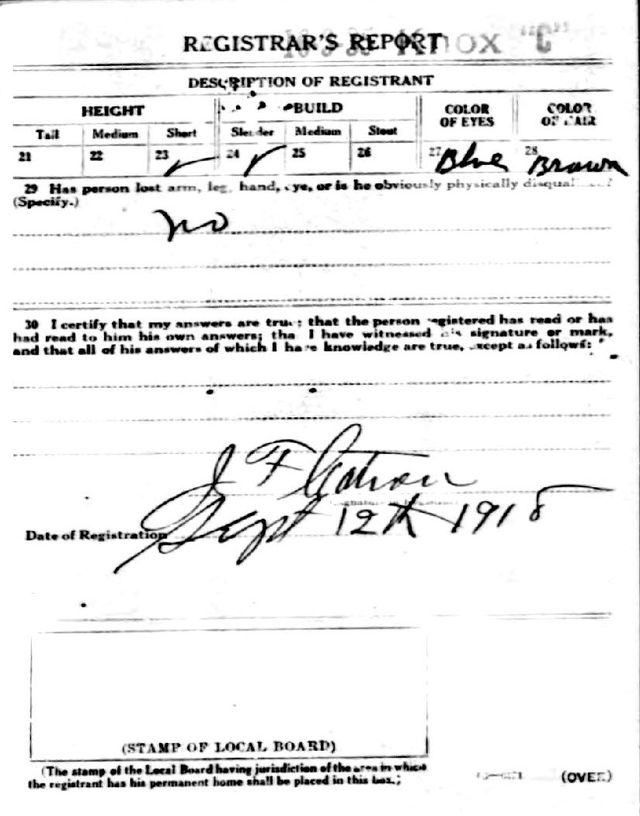 REGISTRAR'S REPORT KNOX "C"
DESCRIPTION OF REGISTRANT
HEIGHT BUILD COLOR OF EYES COLOR OF HAIR
Tall Medium Short Slender Medium Stout
21 22 23 24 25 26 27 Blue 28 Brown
29 Has person lost arm, leg, hand, eye, or is he obviously physically disqualified?
(Specify.)
No
30 I certify that my answers are true; that the person registered has read or has
had read to him his own answers; that I have witnessed his signature or mark,
and that all of his answers of which I have knowledge are true, except as follows:
J F
Date of Registration Sept 12th 1918
(STAMP OF LOCAL BOARD)
(The stamp of the Local Board having jurisdiction of the area in which
the registrant has his permanent home shall be placed in this box.)
(OVER)